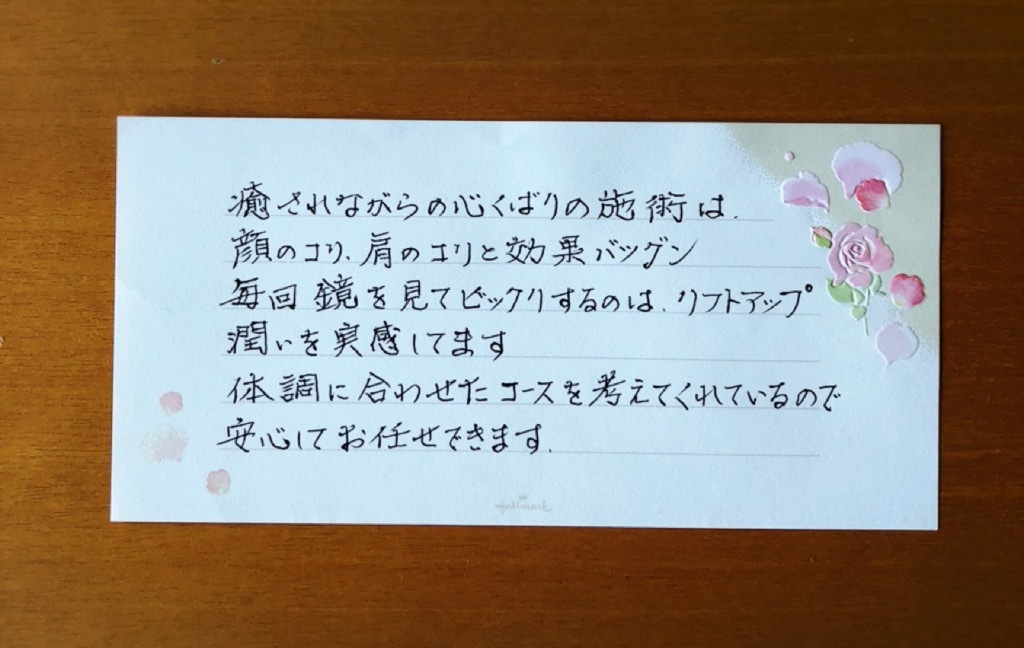 癒されながらの心くばりの施術は、
顔のコリ、肩のコリと効果バツグン
毎回鏡を見てビックリするのは、リフトアップ
潤いを実感してます
体調に合わせたコースを考えてくれているので
安心してお任せできます。
Hallmark